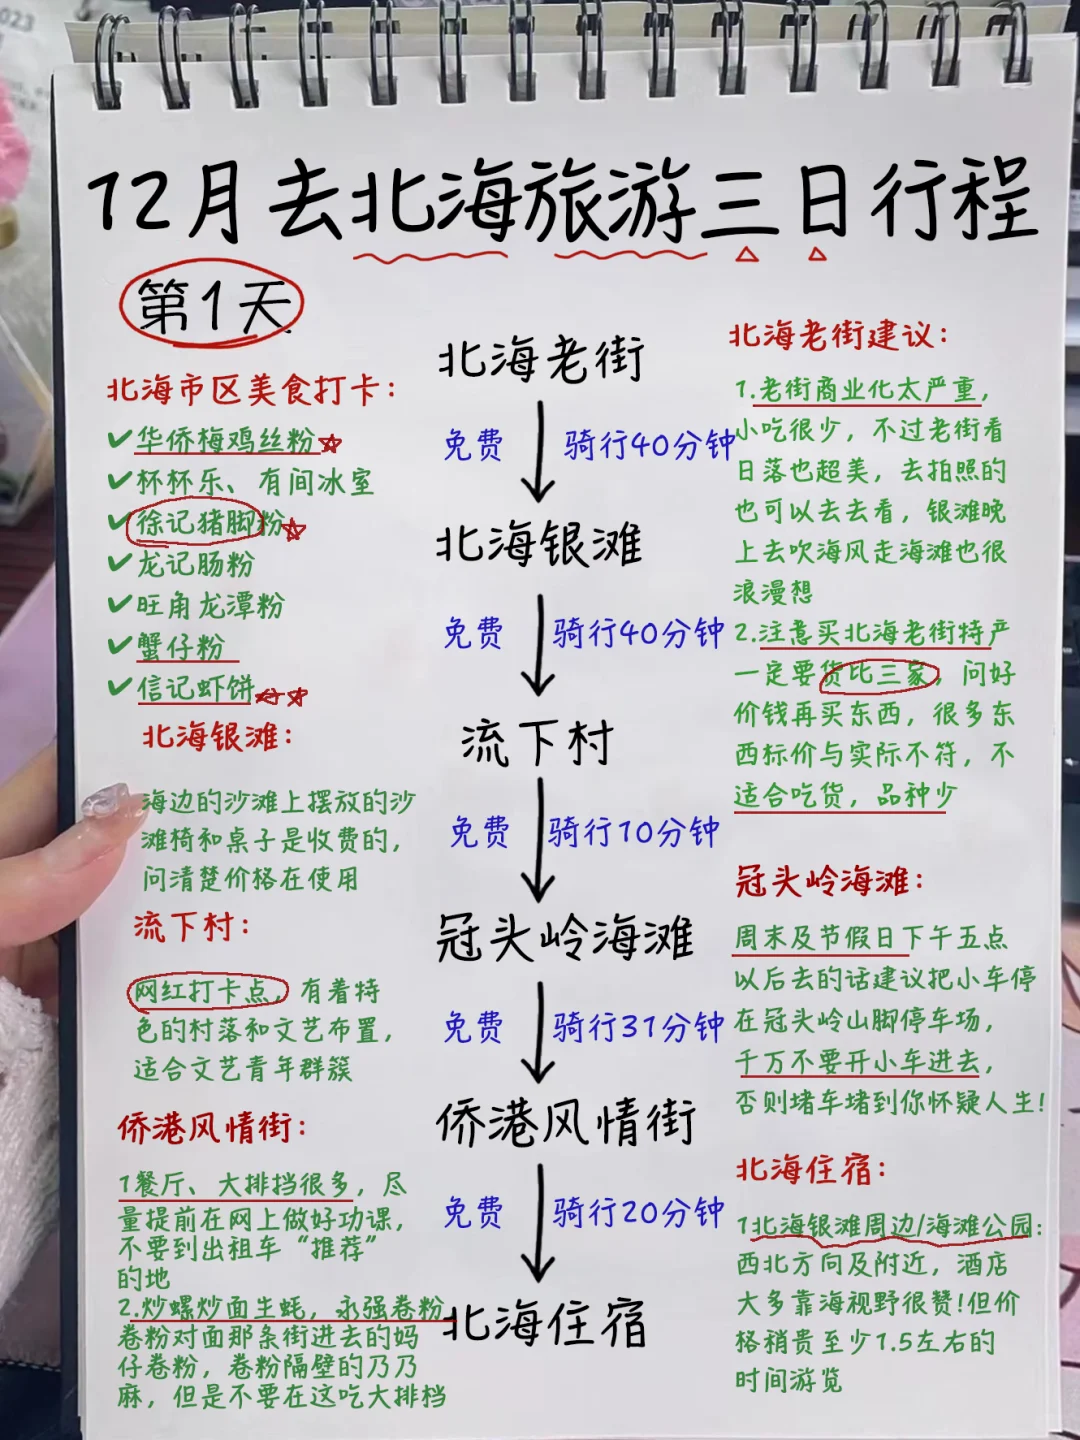 023
12月去北海旅游三日行程
第1天
北海市区美食打卡：
✔华侨梅鸡丝粉
✔杯杯乐、有间冰室
✔徐记猪脚粉
✔龙记肠粉
✔旺角龙潭粉
✔蟹仔粉
✔信记虾饼
北海银滩：
海边的沙滩上摆放的沙
滩椅和桌子是收费的，
问清楚价格在使用
流下村：
网红打卡点，有着特
色的村落和文艺布置，
适合文艺青年群簇
侨港风情街：
1餐厅、大排挡很多，尽
量提前在网上做好功课，
不要到出租车“推荐”
的地
2.炒螺炒面生蚝，永强卷粉
卷粉对面那条街进去的妈
仔卷粉，卷粉隔壁的乃乃
麻，但是不要在这吃大排档
北海老街
免费 骑行40分钟
北海银滩
免费 骑行40分钟
流下村
免费 骑行10分钟
冠头岭海滩
免费 骑行31分钟
侨港风情街
免费 骑行20分钟
北海住宿
北海老街建议：
1.老街商业化太严重，
小吃很少，不过老街看
日落也超美，去拍照的
也可以去去看，银滩晚
上去吹海风走海滩也很
浪漫想
2.注意买北海老街特产
一定要货比三家，问好
价钱再买东西，很多东
西标价与实际不符，不
适合吃货，品种少
冠头岭海滩：
周末及节假日下午五点
以后去的话建议把小车停
在冠头岭山脚停车场，
千万不要开小车进去，
否则堵车堵到你怀疑人生！
北海住宿：
1北海银滩周边/海滩公园：
西北方向及附近，酒店
大多靠海视野很赞！但价
格稍贵至少1.5左右的
时间游览